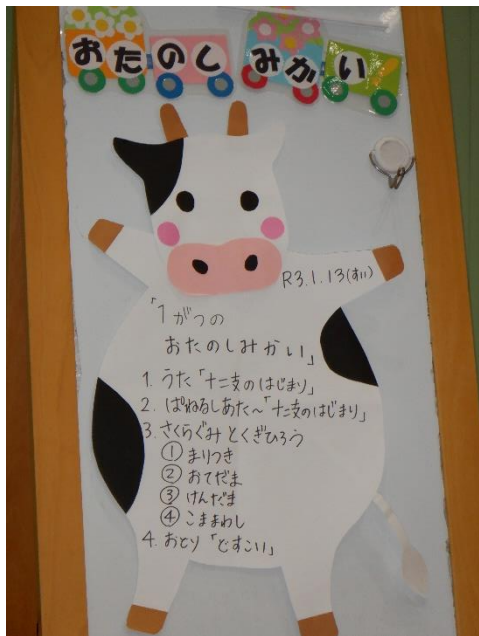 おたのしみかい
R3.1.13(すい)
「1がつの
おたのしみかい」
1. うた「十二支のはじまり」
2. ぱねるしあたー「十二支のはじまり」
3. さくらぐみ とくぎひろう
① まりつき
② おてだま
③ けんだま
④ こままわし
4. おどり「どすこい」